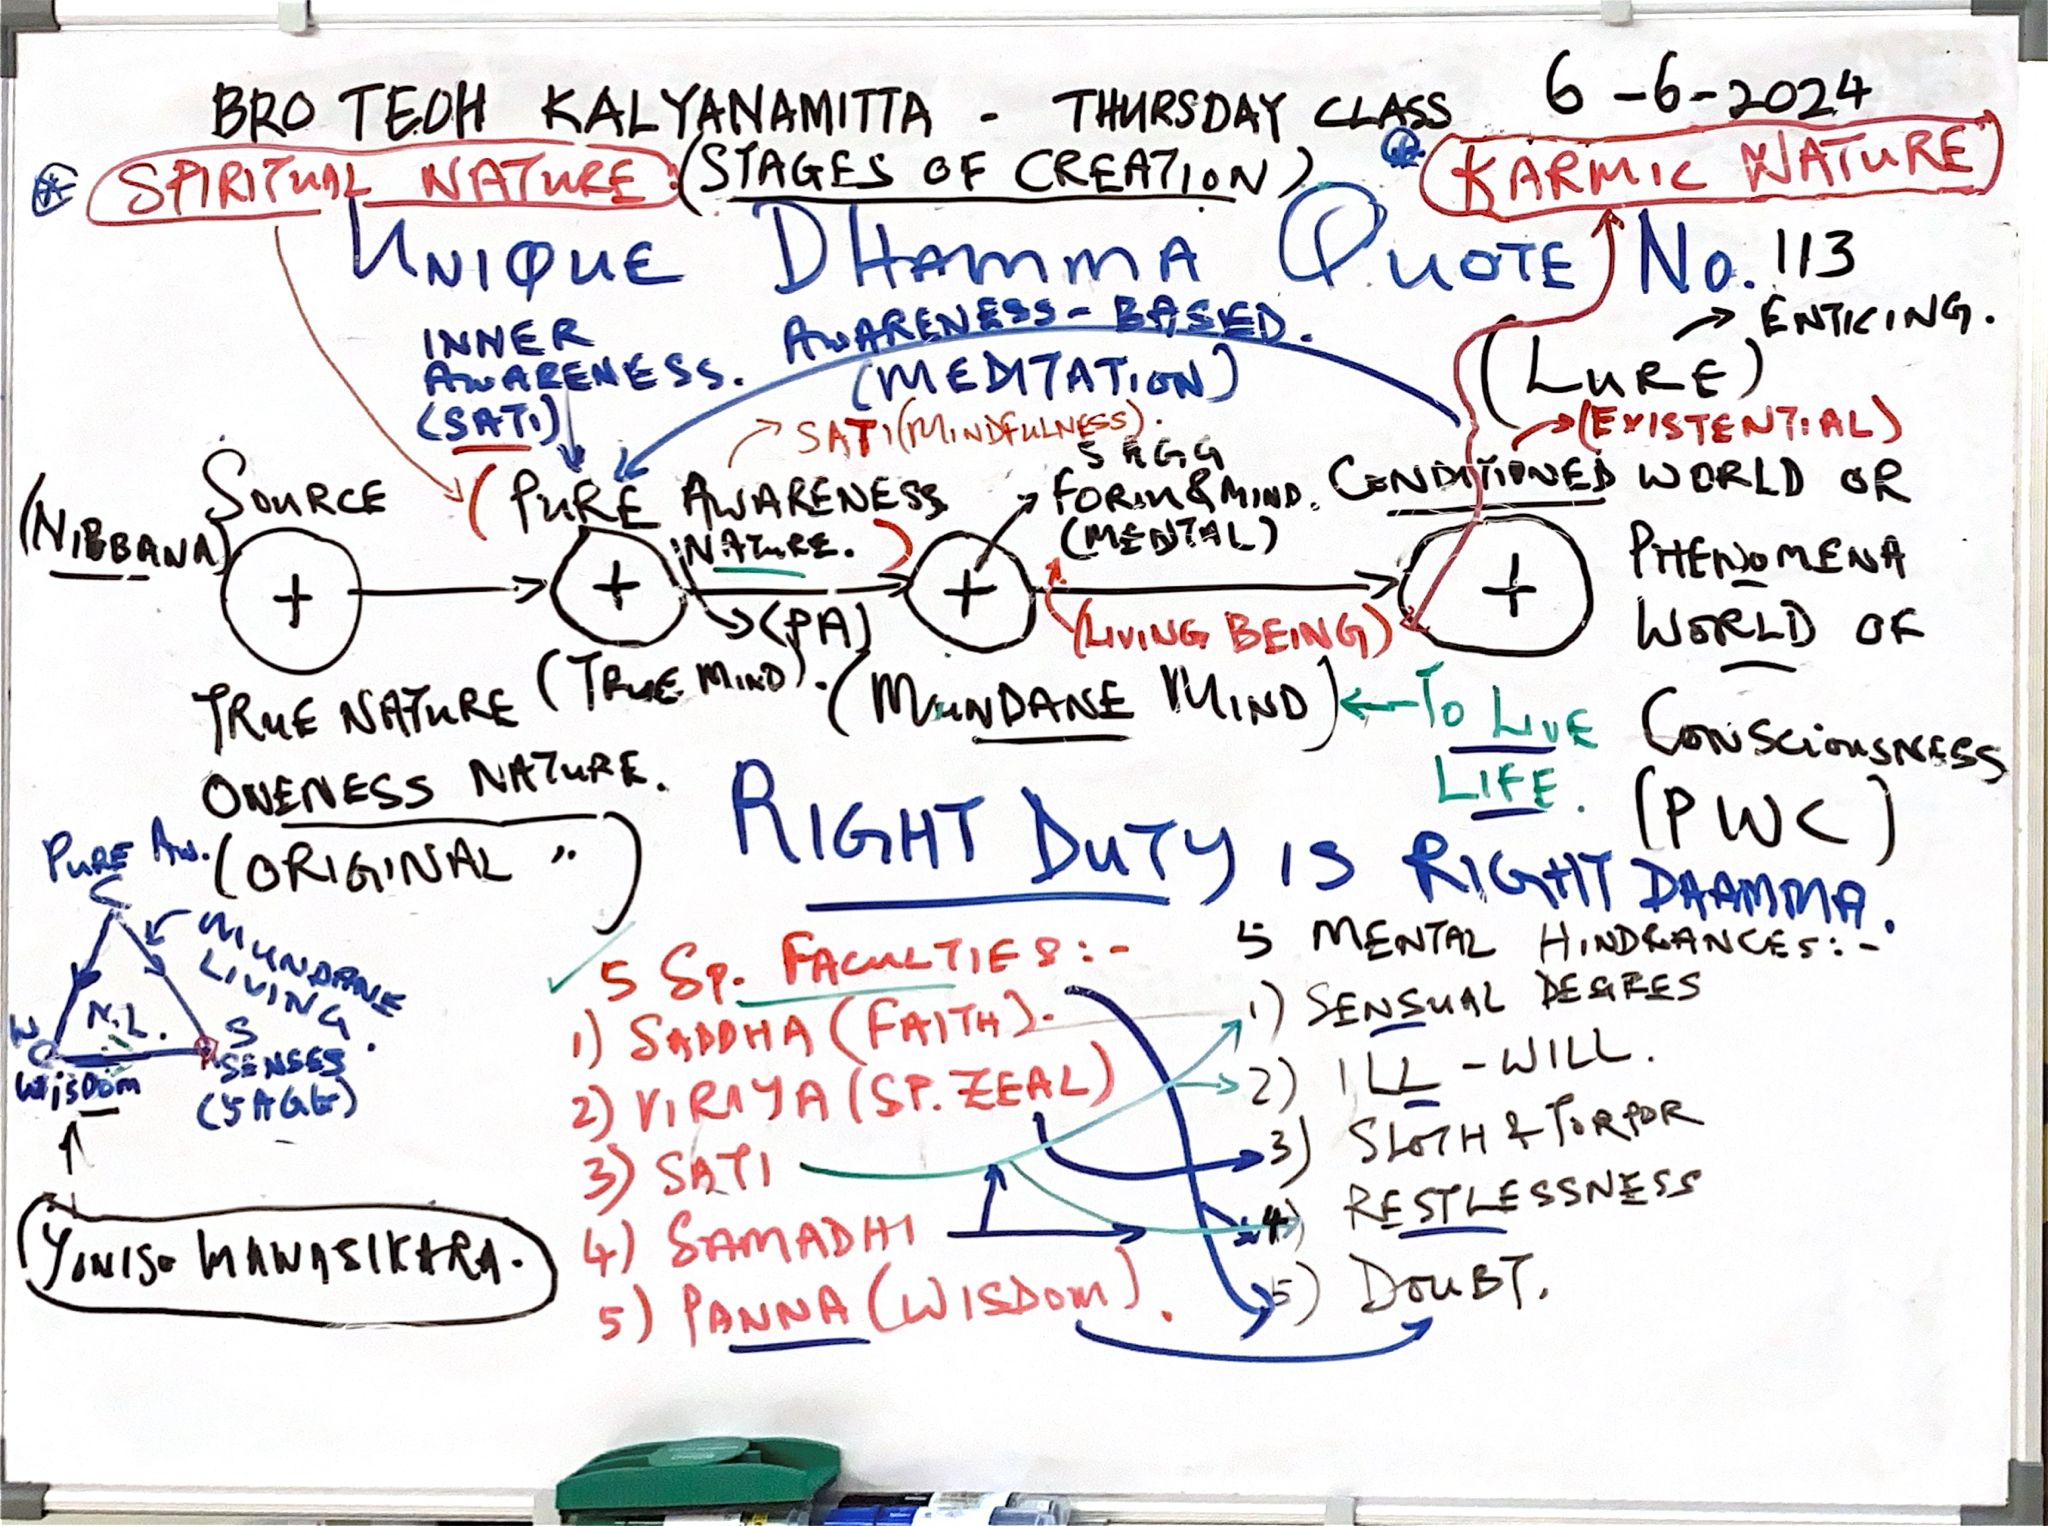 BRO TEOH KALYANAMITTA - THURSDAY CLASS 6-6-2024
SPIRITUAL NATURE: (STAGES OF CREATION) KARMIC NATURE
UNIQUE DHAMMA QUOTE NO. 113
(LURE) → ENTICING.
→ (EXISTENTIAL)
INNER
AWARENESS.
(SATI)
AWARENESS-BASED.
(MEDITATION)
→ SATI (MINDFULNESS).
(NIBBANA)
SOURCE
(PURE AWARENESS
NATURE.)
→ (PA)
5 AGG
FORM & MIND.
(MENTAL)
CONDITIONED WORLD OR
PHENOMENA
WORLD OF
CONSCIOUSNESS
(PWC)
(LIVING BEING)
TRUE NATURE
ONENESS NATURE.
(ORIGINAL "
(TRUE MIND).
(MUNDANE MIND) ← TO LIVE
LIFE.
RIGHT DUTY IS RIGHT DHAMMA.
PURE AW.
C
MUNDANE
LIVING.
N.L.
W
WISDOM
S
SENSES
(5 AGG)
YONISO MANASIKARA.
5 SP. FACULTIES:-
1) SADDHA (FAITH).
2) VIRIYA (SP. ZEAL)
3) SATI
4) SAMADHI
5) PANNA (WISDOM).
5 MENTAL HINDRANCES:-
1) SENSUAL DESIRES
2) ILL-WILL.
3) SLOTH & TORPOR
4) RESTLESSNESS
5) DOUBT.